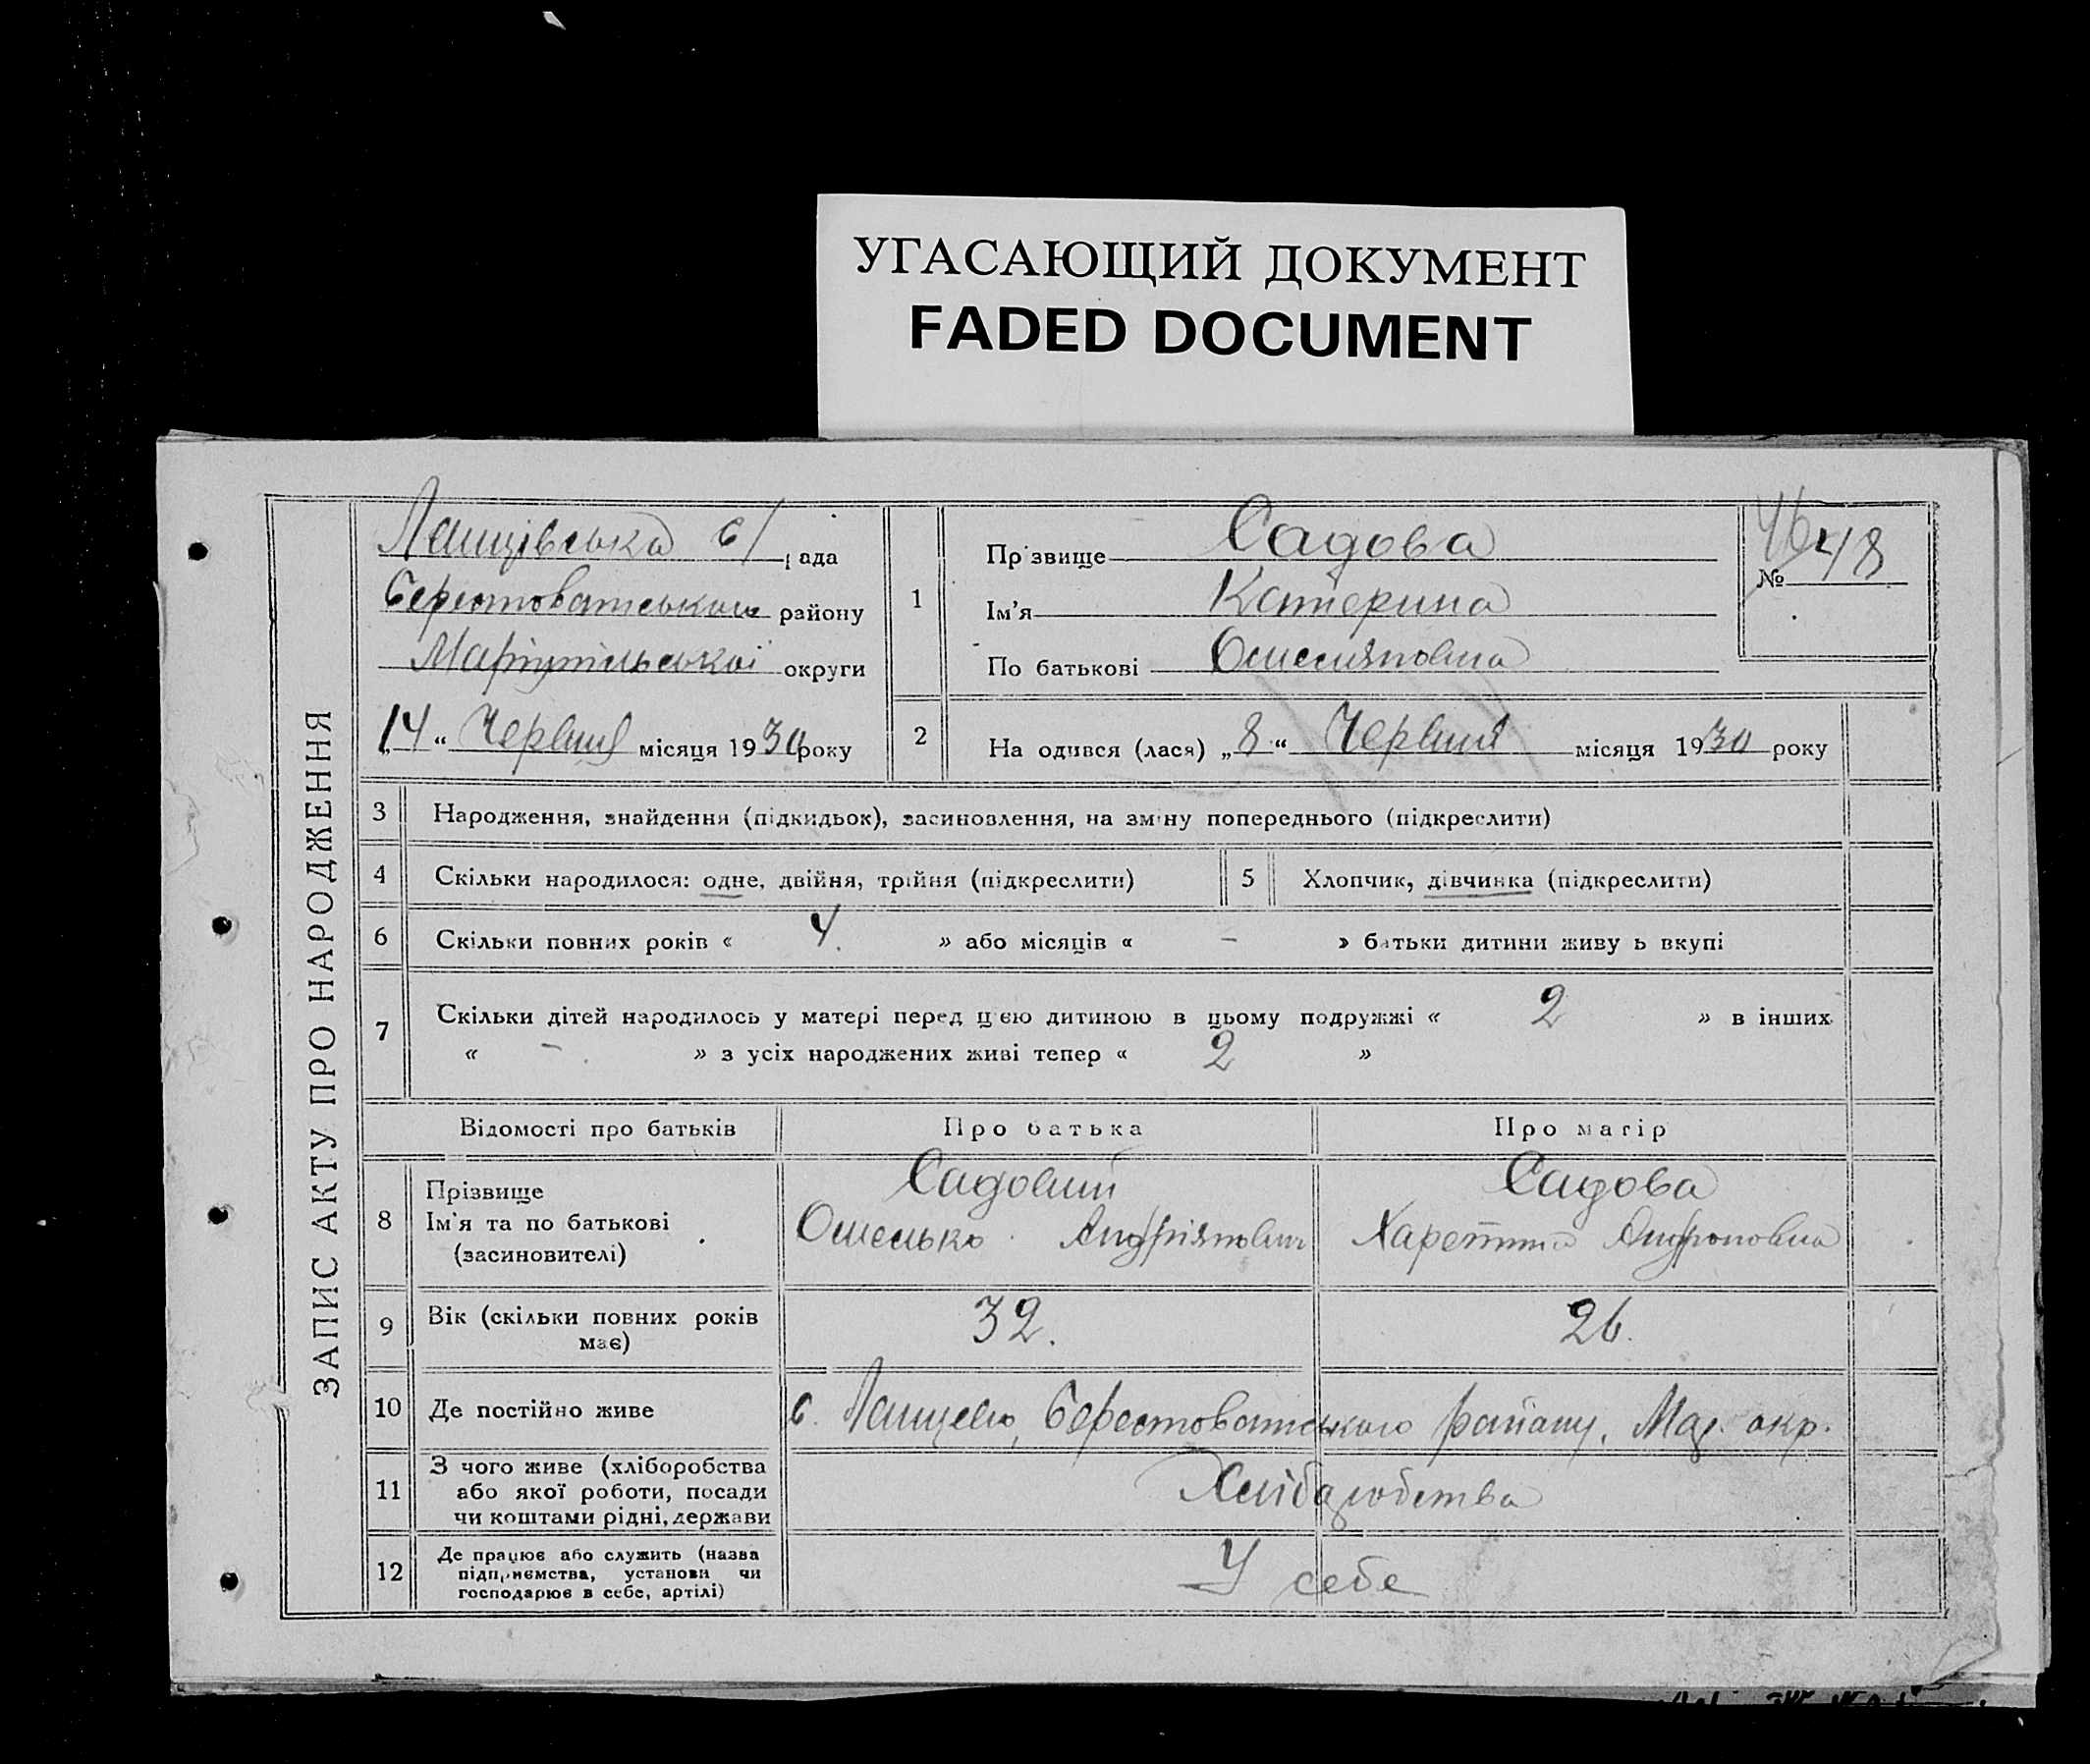 УГАСАЮЩИЙ ДОКУМЕНТ
FADED DOCUMENT
ЗАПИС АКТУ ПРО НАРОДЖЕННЯ
с/ рада
району
Маріупільської округи
„14“ Червня місяця 1930 року
1
Прізвище Садова
Ім'я Катерина
По батькові
№ 48
2
На одився (лася) „8“ Червня місяця 1930 року
3 Народження, знайдення (підкидьок), засиновлення, на зміну попереднього (підкреслити)
4 Скільки народилося: одне, двійня, трійня (підкреслити)
5 Хлопчик, дівчинка (підкреслити)
6 Скільки повних років « 4. » або місяців « – » батьки дитини живу ь вкупі
7 Скільки дітей народилось у матері перед цією дитиною в цьому подружжі « 2 » в інших
« – . » з усіх народжених живі тепер « 2 »
Відомості про батьків Про батька Про матір
8 Прізвище
Ім'я та по батькові
(засиновителі)
Садовий
Садова
9 Вік (скільки повних років
має)
32.
26.
10 Де постійно живе
с. району, Мар. окр.
11 З чого живе (хліборобства
або якої роботи, посади
чи коштами рідні, держави
Хліборобства
12 Де працює або служить (назва
підприємства, установи чи
господарює в себе, артілі)
У себе